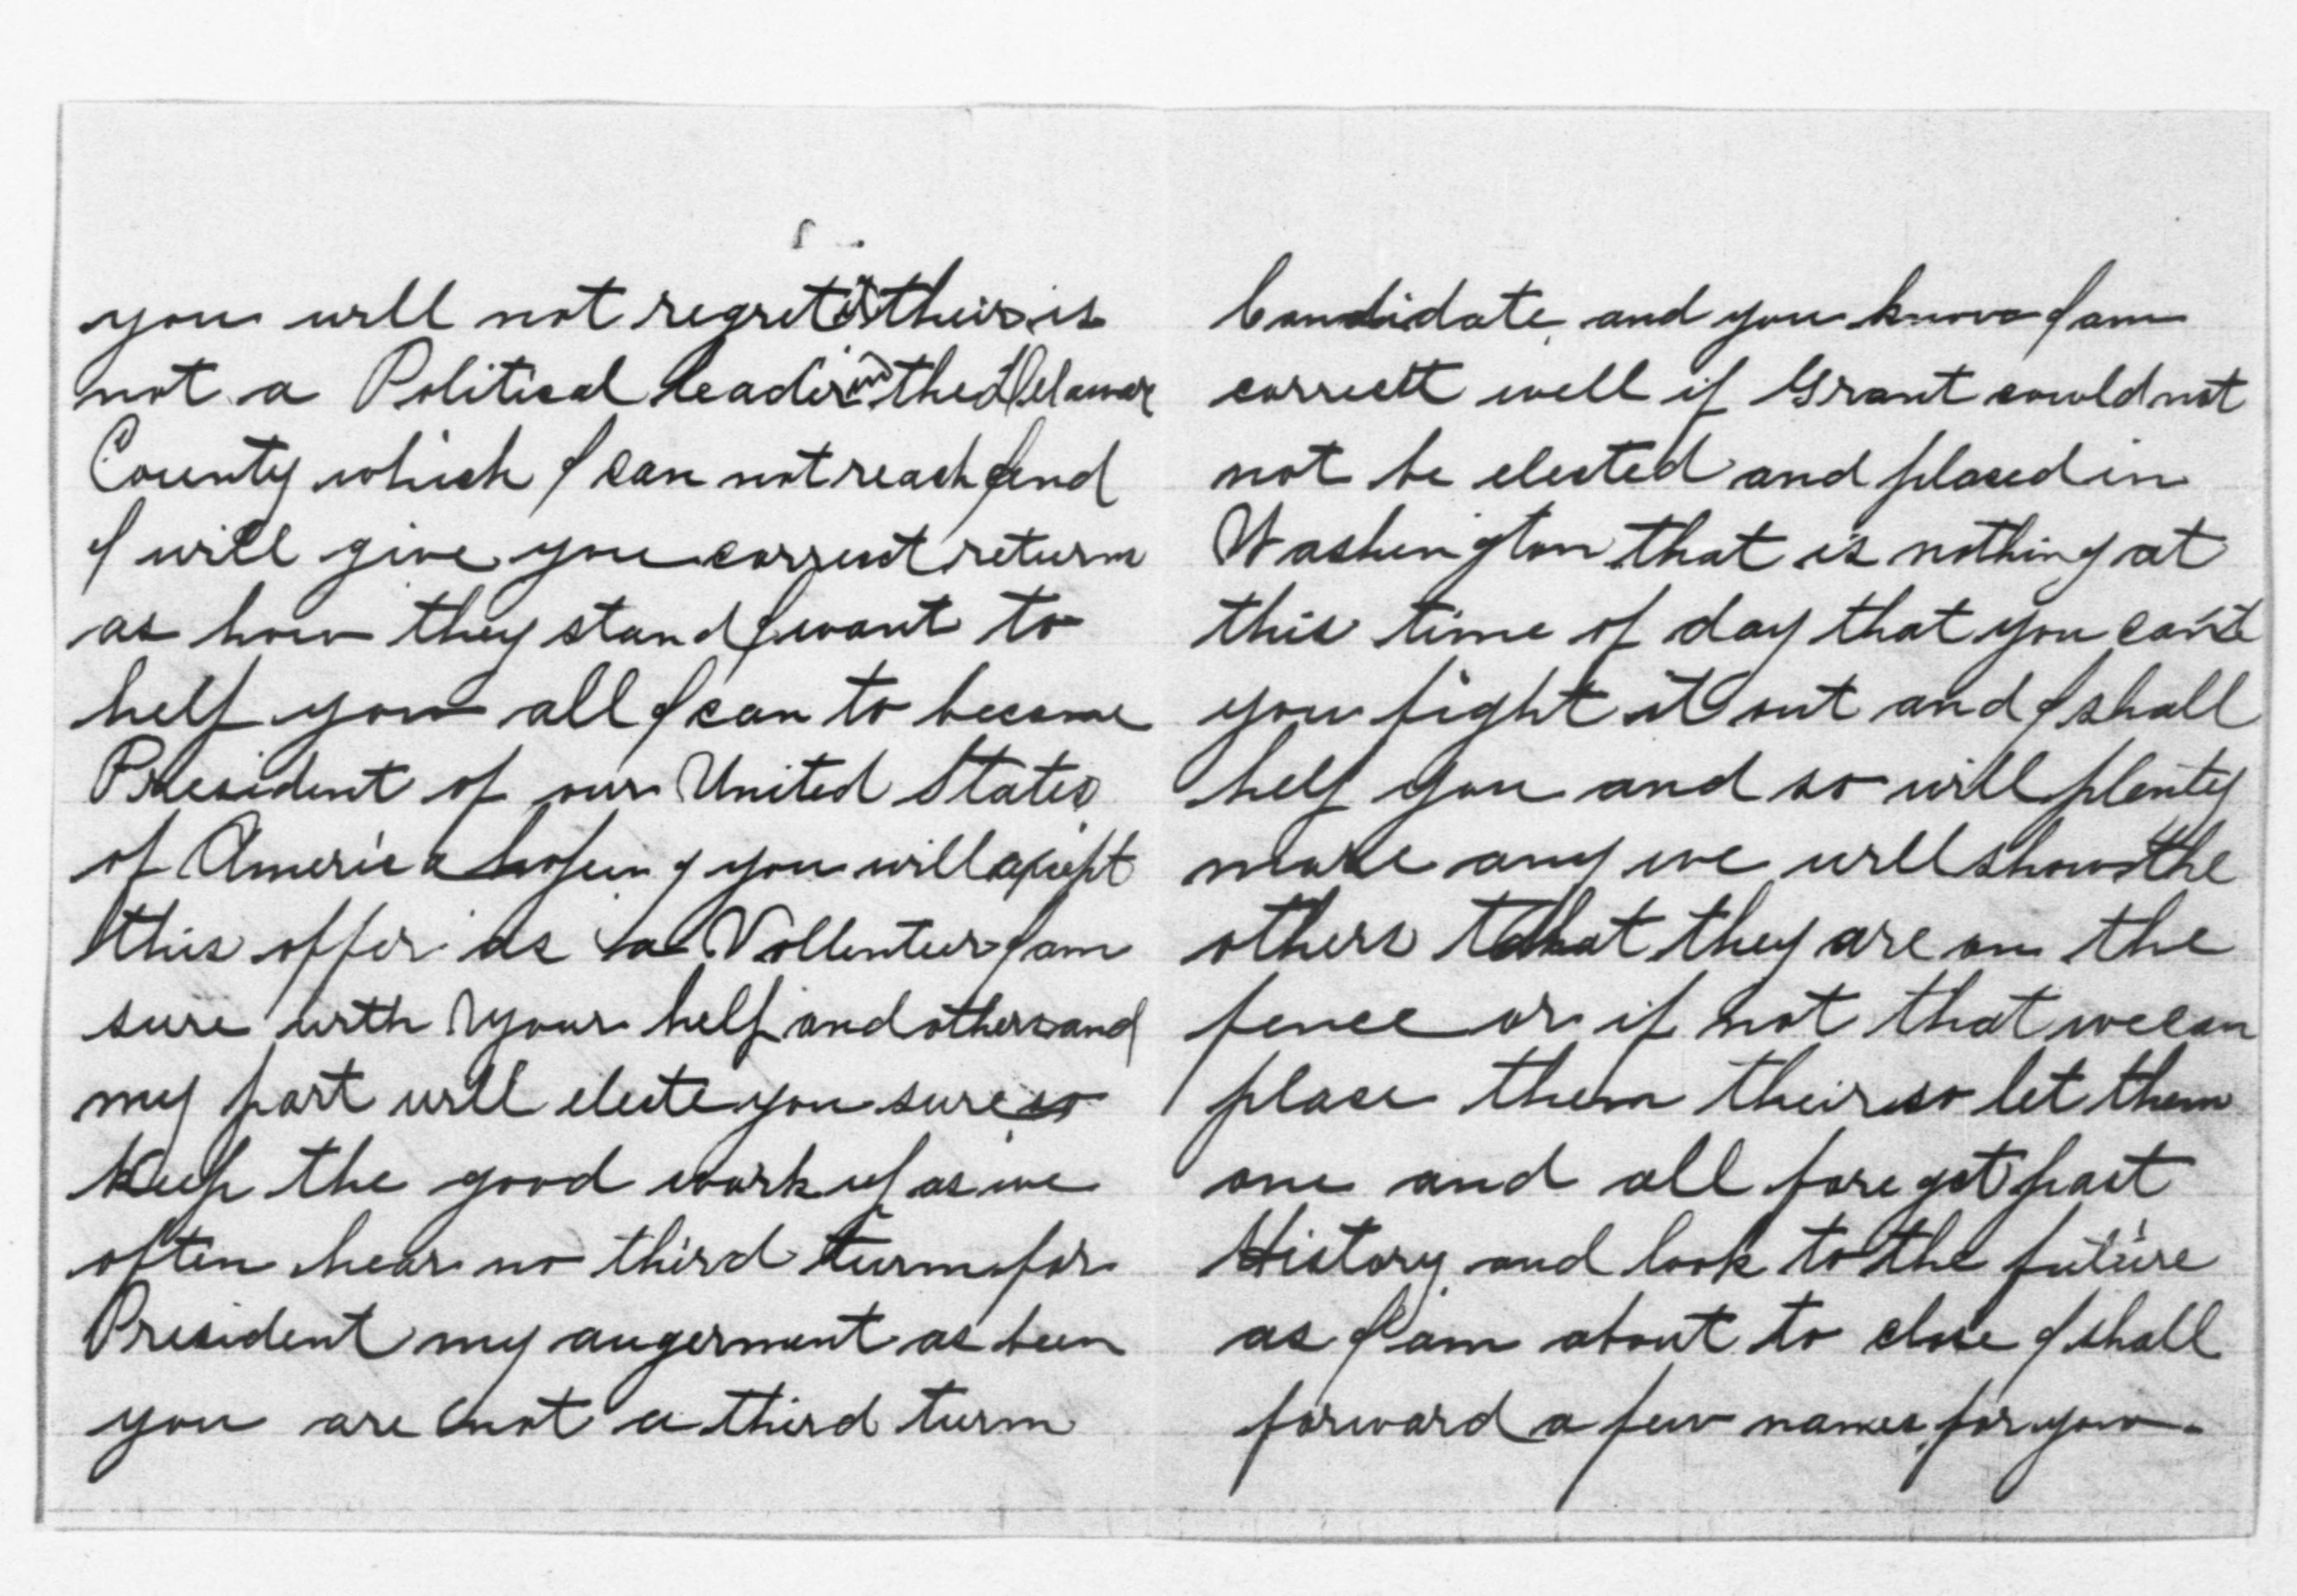 you will not regret it their is
not a Political leader in the Delawar
County which I can not reach and
I will give you correct return
as how they stand I want to
help you all I can to become
President of our United States
of America hopeing you will
this offer as a Vollenteer I am
sure with your help and others and
my part will electe you sure so
keep the good work up as we
often hear no third turm for
President my augerment as been
you are not a third turm
Candidate, and you know I am
correct well if Grant could not
not be elected and placed in
Washington that is nothing at
this time of day that you can't
you fight it out and I shall
help you and so will plenty
more any we will show the
others that they are on the
fence or if not that we can
place them their so let them
one and all fore get past
History and look to the future
as I am about to close I shall
forward a few names for you.